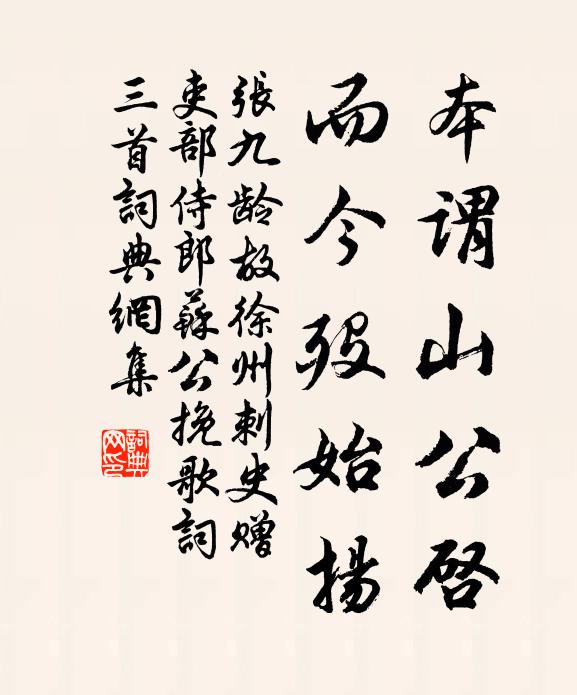 本謂山公啓
而今歿始揚
張九齡故徐州刺史贈
吏部侍郎蘇公挽歌詞
三首詞典網集
詞典
网印